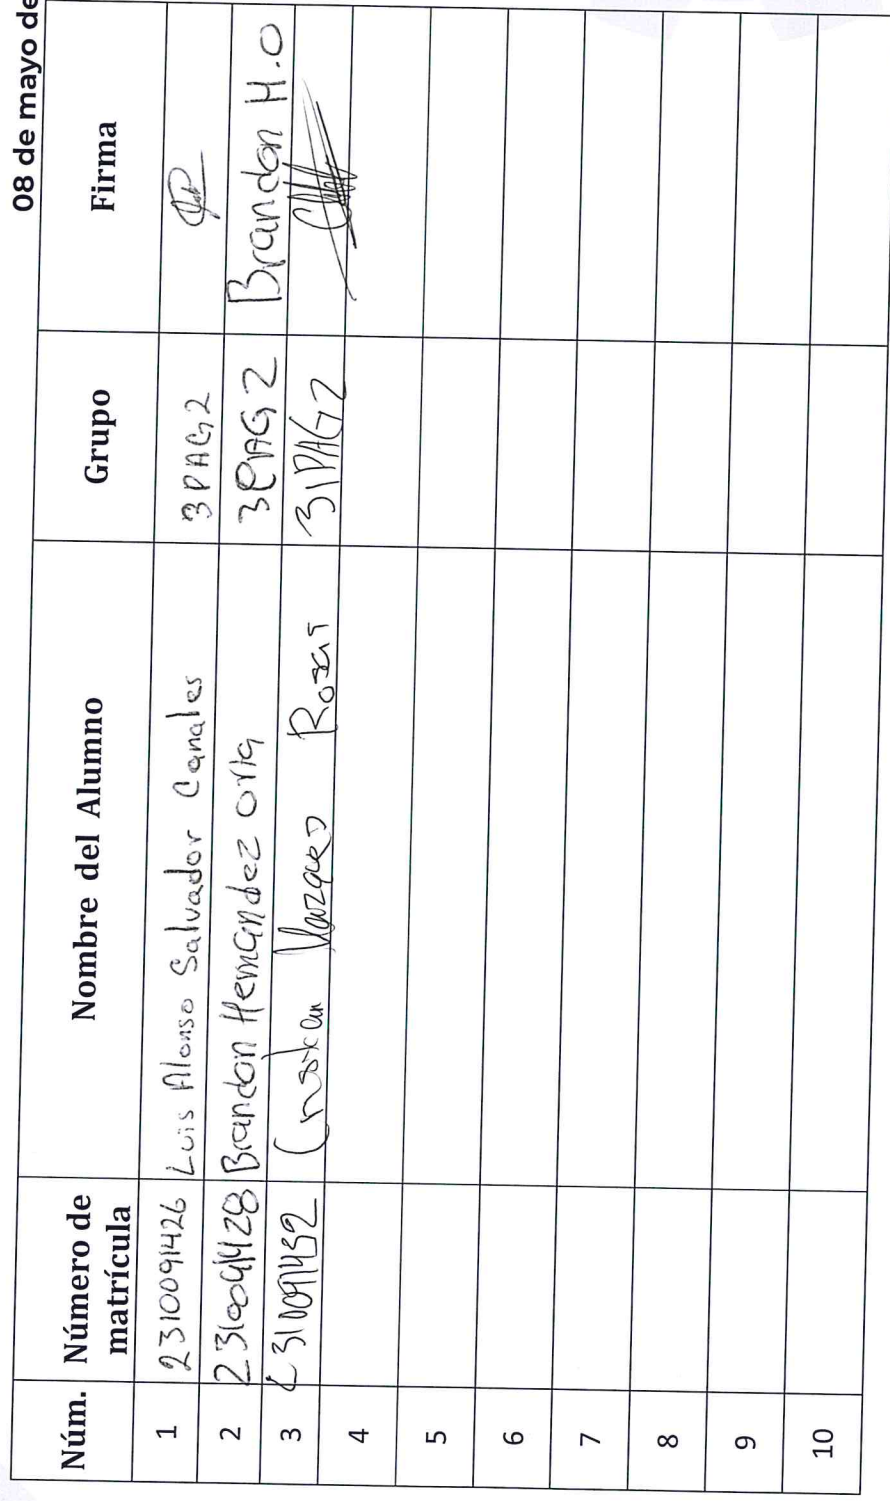 08 de mayo de
Núm. Número de matrícula Nombre del Alumno Grupo Firma
1 2310091426 Luis Alonso Salvador Canales 3PAG2
2 2310091428 Brandon Hernandez Orta 3PAG2 Brandon H.O
3 2310091432 Cristian Vazquez 3PAG2
4
5
6
7
8
9
10